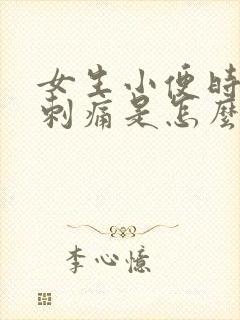 女生小便时
刺痛是怎麽
李心憶